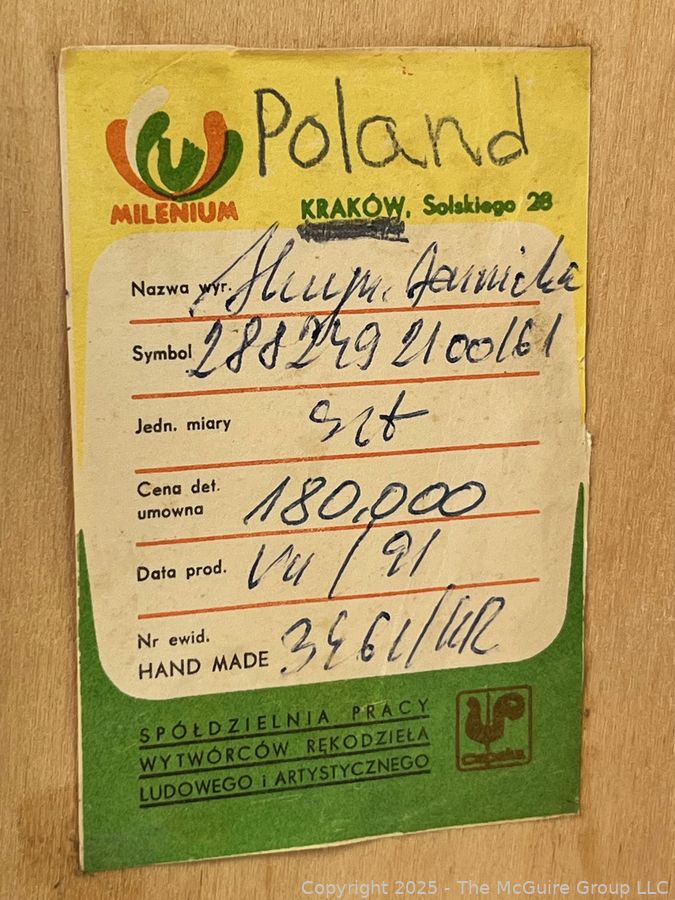 Poland
MILENIUM
KRAKÓW, Solskiego 28
Nazwa wyr.
Symbol 288249 2100/61
Jedn. miary szt
Cena det. umowna 180.000
Data prod. VII / 91
Nr ewid.
HAND MADE
SPÓŁDZIELNIA PRACY
WYTWÓRCÓW RĘKODZIEŁA
LUDOWEGO i ARTYSTYCZNEGO
cepelia
Copyright © 2025 - The McGuire Group LLC